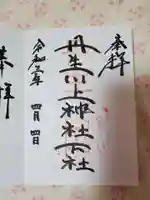 奉拝
丹生川上神社下社
令和五年
四月四日
奉拝